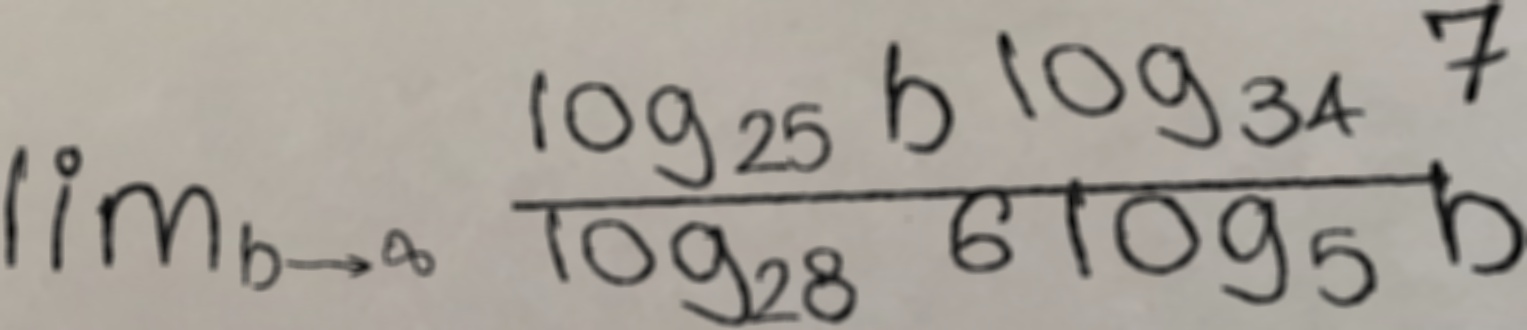 lim_{b→∞} \frac{log_{25} b log_{34} 7}{log_{28} 6 log_5 b}